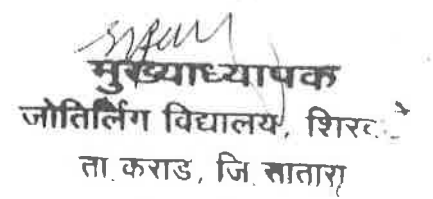 मुख्याध्यापक
जोतिर्लिंग विद्यालय,
ता. कराड, जि. सातारा